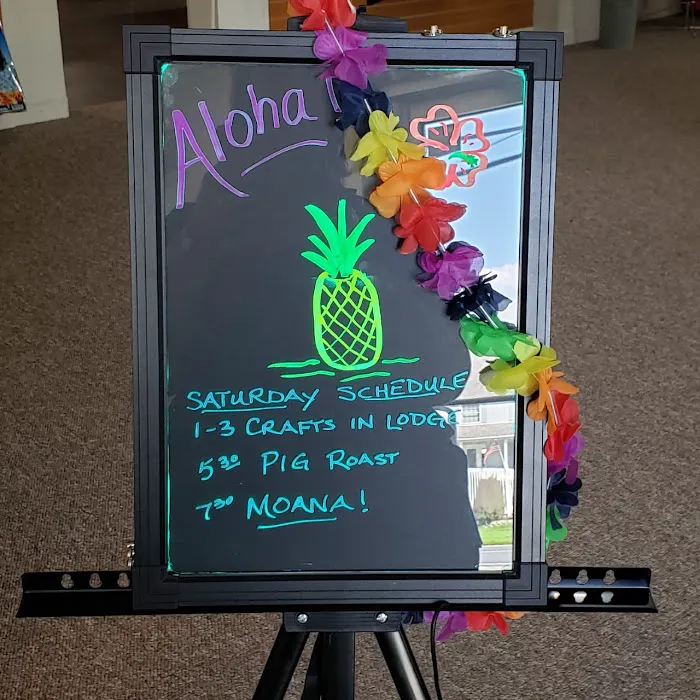 Aloha!
SATURDAY SCHEDULE
1-3 CRAFTS IN LODGE
5³⁰ PIG ROAST
7³⁰ MOANA!